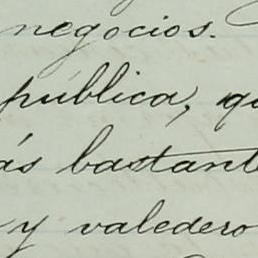 negocios.
pública, qu
ás bastante
y valedero